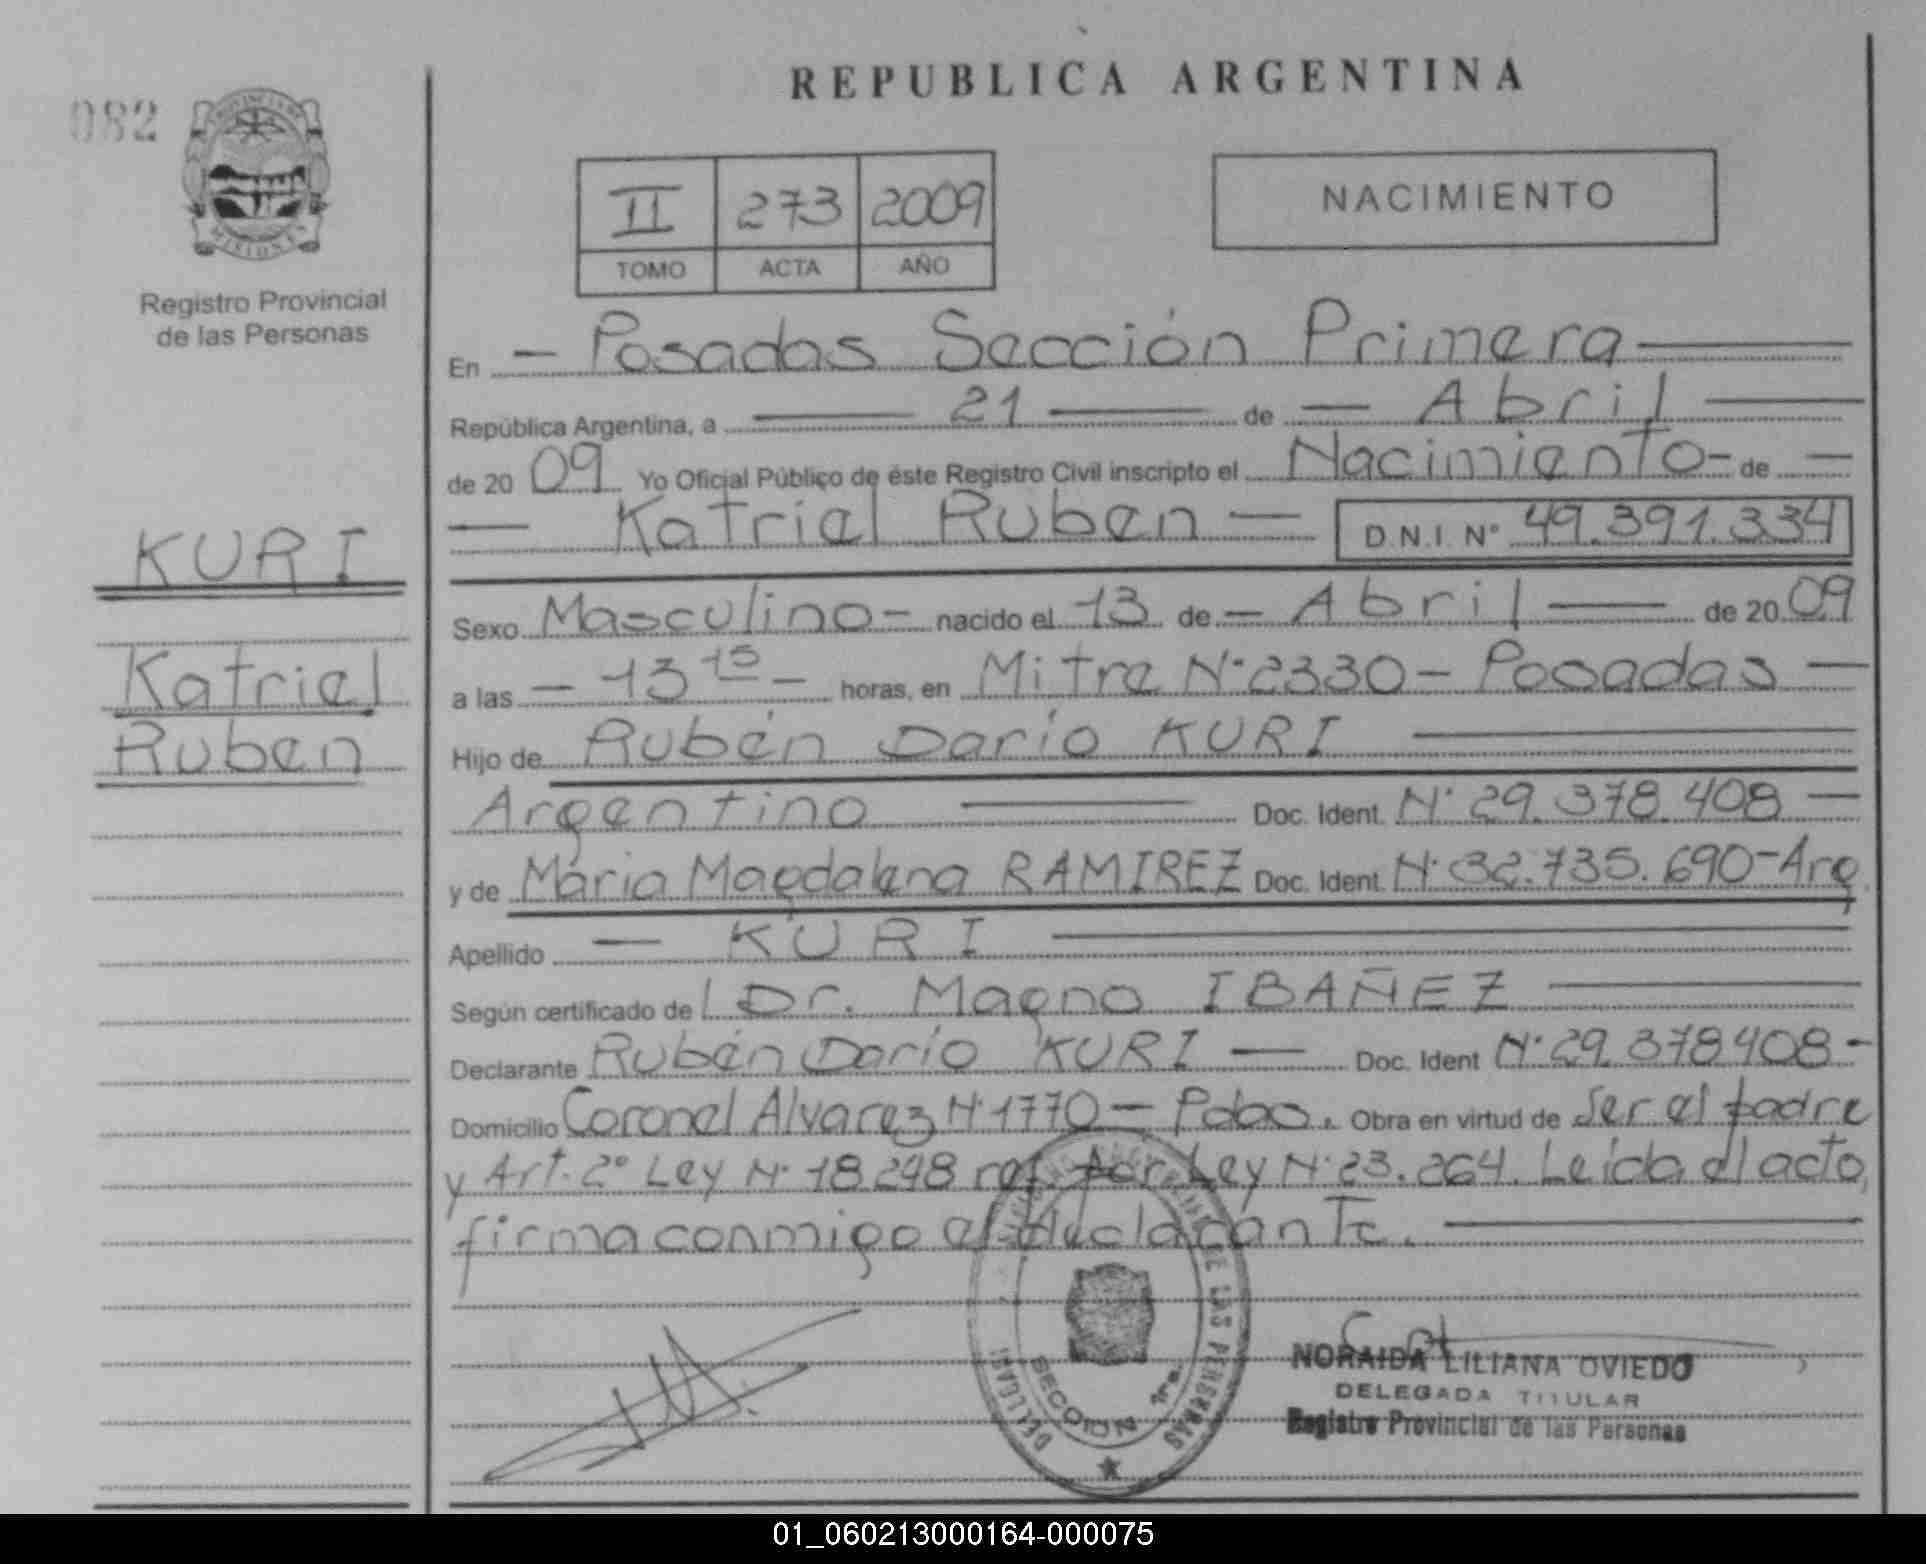 REPUBLICA ARGENTINA
082
PROVINCIA DE
MISIONES
Registro Provincial
de las Personas
II 273 2009
TOMO ACTA AÑO
NACIMIENTO
En — Posadas Sección Primera —
República Argentina, a — 21 — de — Abril —
de 20 09 Yo Oficial Público de éste Registro Civil inscripto el Nacimiento - de —
— Katriel Ruben — D.N.I. Nº 49.391.334
KURI
Katriel
Ruben
Sexo Masculino - nacido el 13 de — Abril — de 20 09
a las — 13 15 — horas, en Mitre Nº 2330 - Posadas —
Hijo de Rubén Darío KURI —
Argentino — Doc. Ident. Nº 29.378.408 —
y de María Magdalena RAMIREZ Doc. Ident. Nº 32.735.690 - Arg.
Apellido — KURI —
Según certificado de Dr. Magno IBAÑEZ —
Declarante Rubén Darío KURI — Doc. Ident Nº 29.378408 -
Domicilio Coronel Alvarez Nº 1770 — Pdas. Obra en virtud de Ser el padre
y Art. 2º Ley Nº 18.248 ref. por Ley Nº 23.264. Leída el acto,
firma conmigo el declarante. —
DE LAS PERSONAS
SECCION 1ra.
NORAIDA LILIANA OVIEDO
DELEGADA TITULAR
Registro Provincial de las Personas
01_060213000164-000075